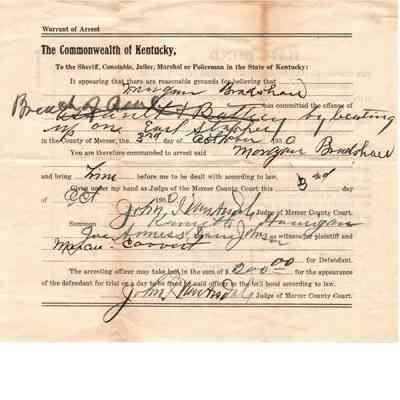 Warrant of Arrest
The Commonwealth of Kentucky,
To the Sheriff, Constable, Jailer, Marshal or Policeman in the State of Kentucky:
It appearing that there are reasonable grounds for believing that
Morgan Bradshaw
has committed the offense of
Breach of
Assault & Battery by beating
up on one Earl
in the County of Mercer, the 3rd day of October
You are therefore commanded to arrest said Morgan Bradshaw
and bring him before me to be dealt with according to law.
Given under my hand as Judge of the Mercer County Court this 3rd day
of Oct
Judge of Mercer County Court.
Summon
as witnesses for plaintiff and
for Defendant.
The arresting officer may take bail in the sum of $200.00 for the appearance
of the defendant for trial on a day to be fixed by said officer in the bail bond according to law.
Judge of Mercer County Court.